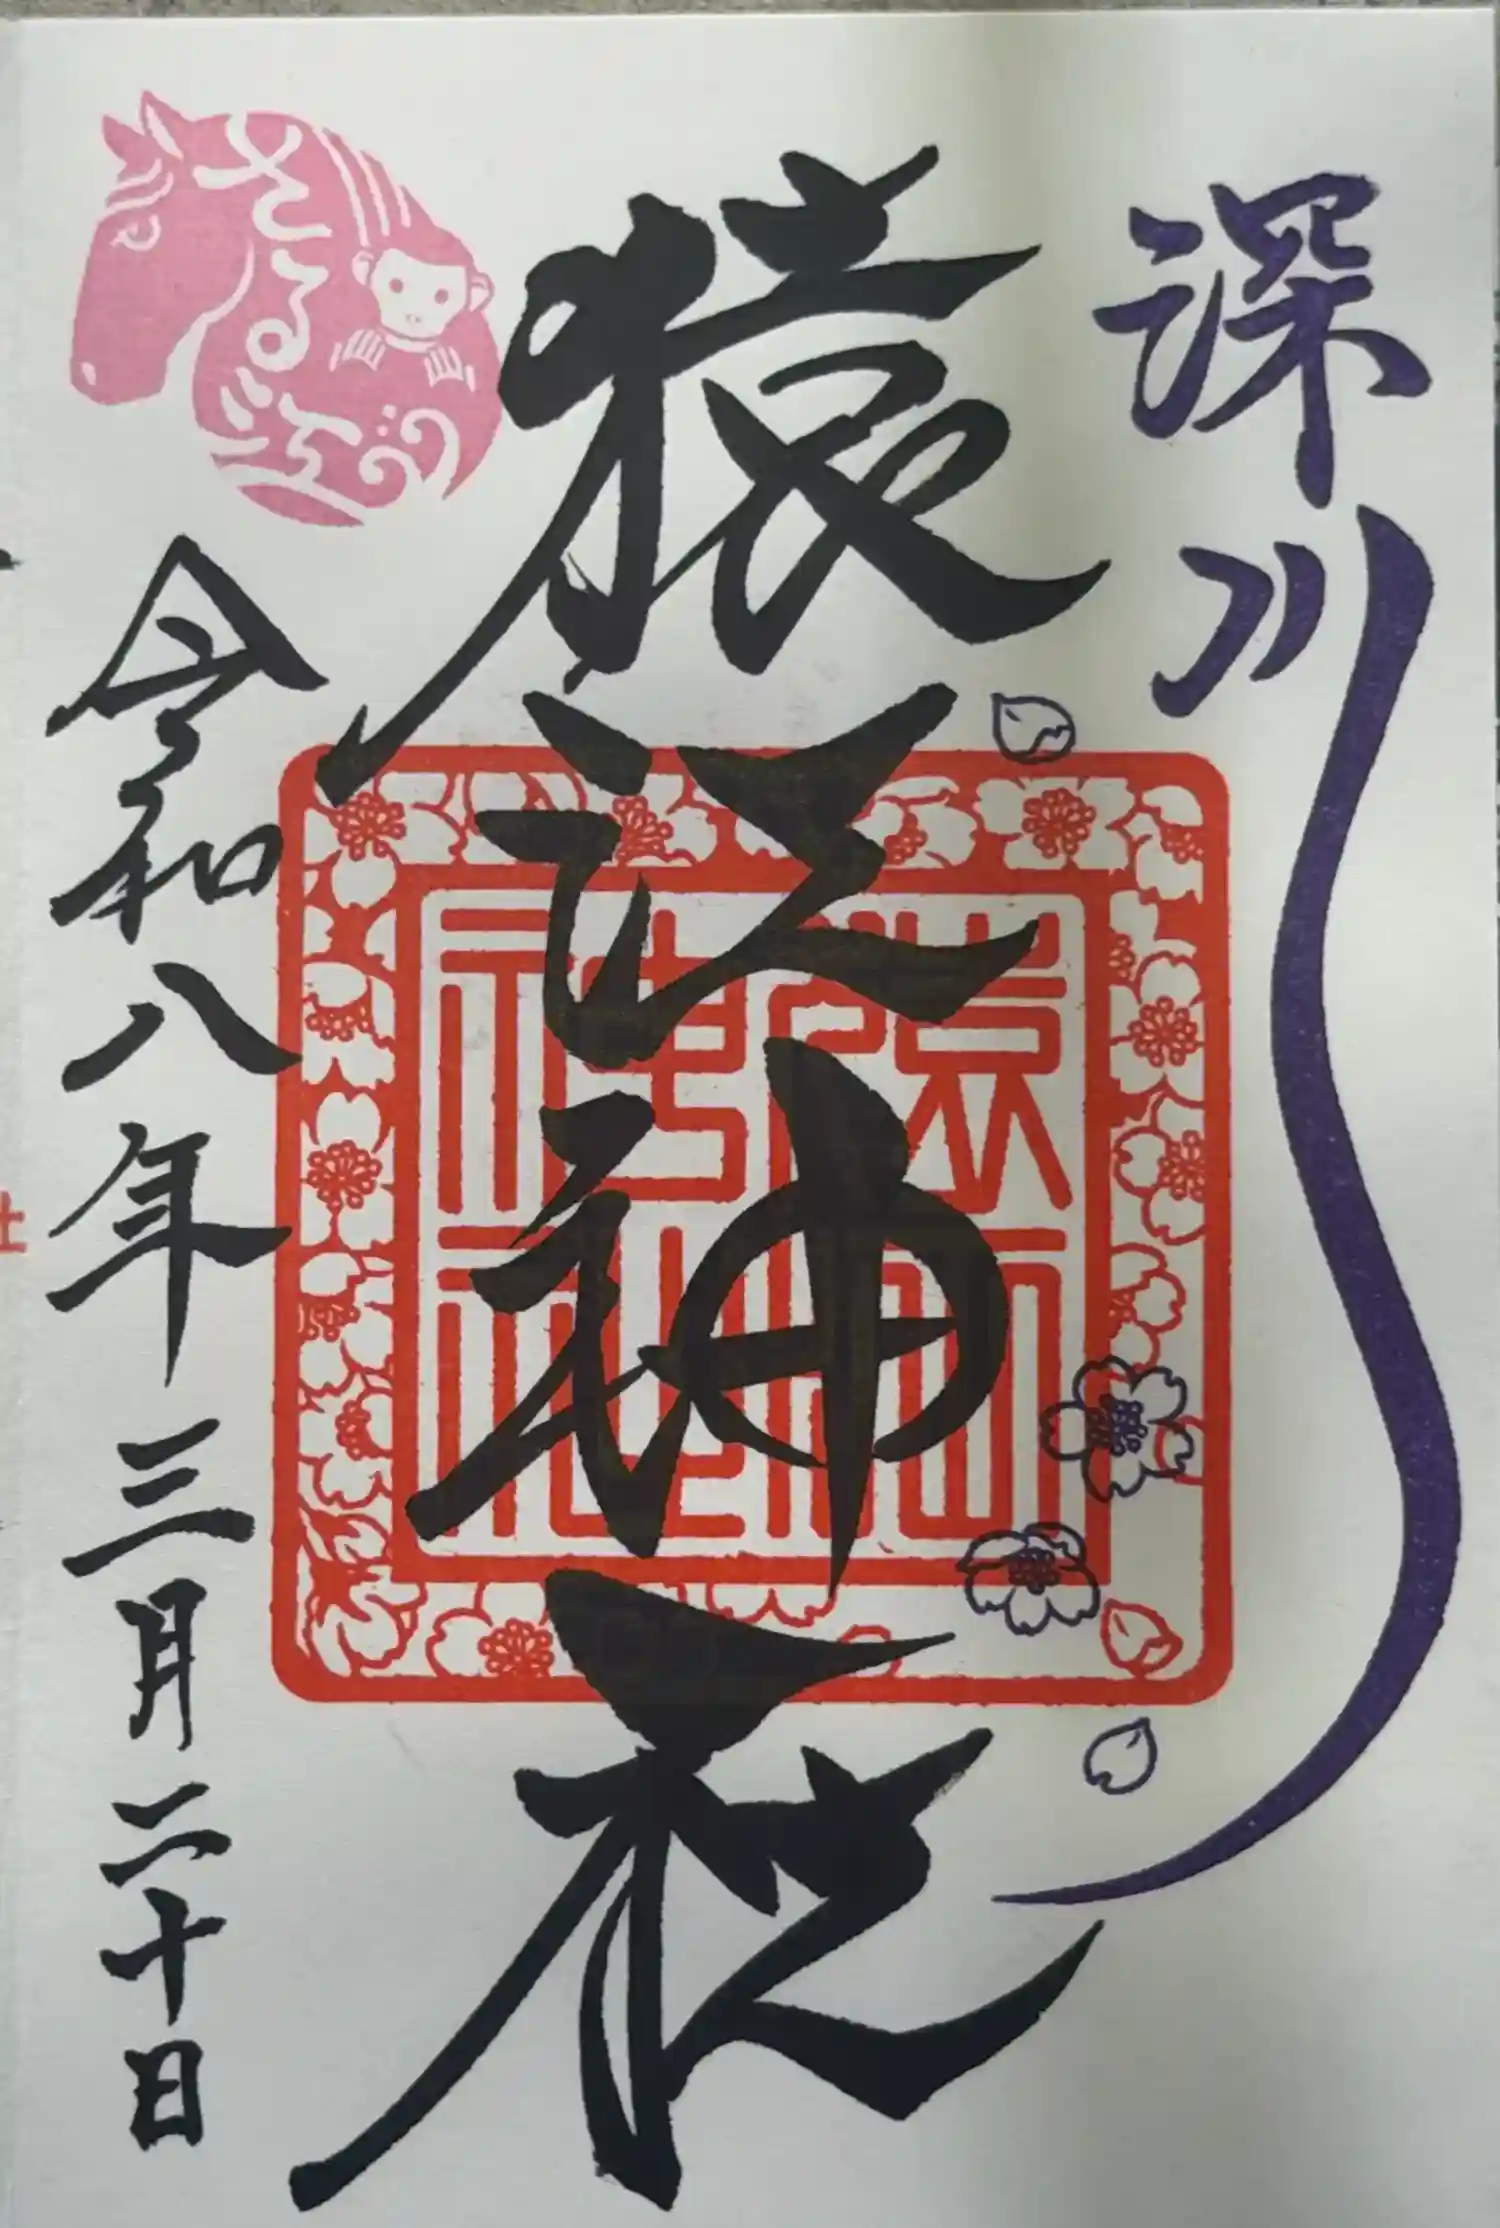 深川
猿江神社
猿江神社
さるえ
令和八年三月二十日
社